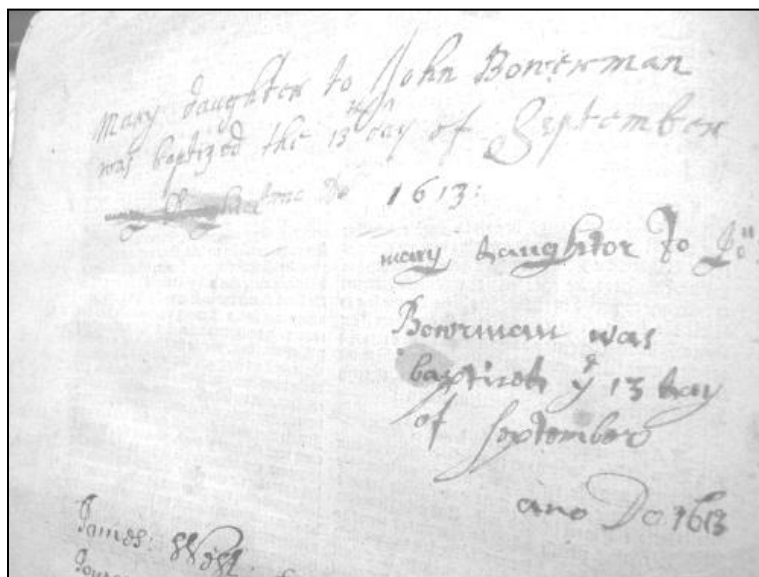 Mary daughter to John Bowerman
was baptized the 13th day of September
Do 1613:
mary daughter to Jon
Bowrman was
baptized ye 13 day
of september
ano Do 1613
James: West